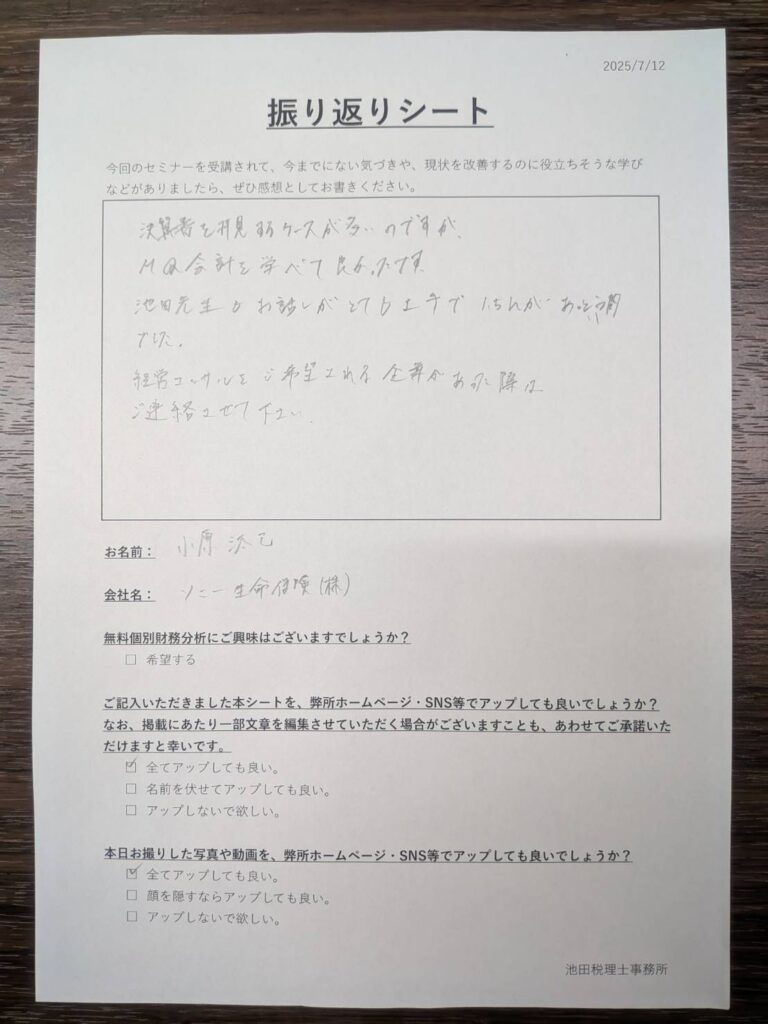 2025/7/12
振り返りシート
今回のセミナーを受講されて、今までにない気づきや、現状を改善するのに役立ちそうな学び
などがありましたら、ぜひ感想としてお書きください。
決算書を拝見するケースが多いのですが、
MQ会計を学べて良かったです
池田先生のお話しがとても上手で 1日が あっという間
でした。
経営コンサルをご希望される企業があった際は
ご連絡させて下さい。
お名前： 小原
会社名： ソニー生命保険(株)
無料個別財務分析にご興味はございますでしょうか？
☐ 希望する
ご記入いただきました本シートを、弊所ホームページ・SNS等でアップしても良いでしょうか？
なお、掲載にあたり一部文章を編集させていただく場合がございますことも、あわせてご承諾いた
だけますと幸いです。
☑ 全てアップしても良い。
☐ 名前を伏せてアップしても良い。
☐ アップしないで欲しい。
本日お撮りした写真や動画を、弊所ホームページ・SNS等でアップしても良いでしょうか？
☑ 全てアップしても良い。
☐ 顔を隠すならアップしても良い。
☐ アップしないで欲しい。
池田税理士事務所